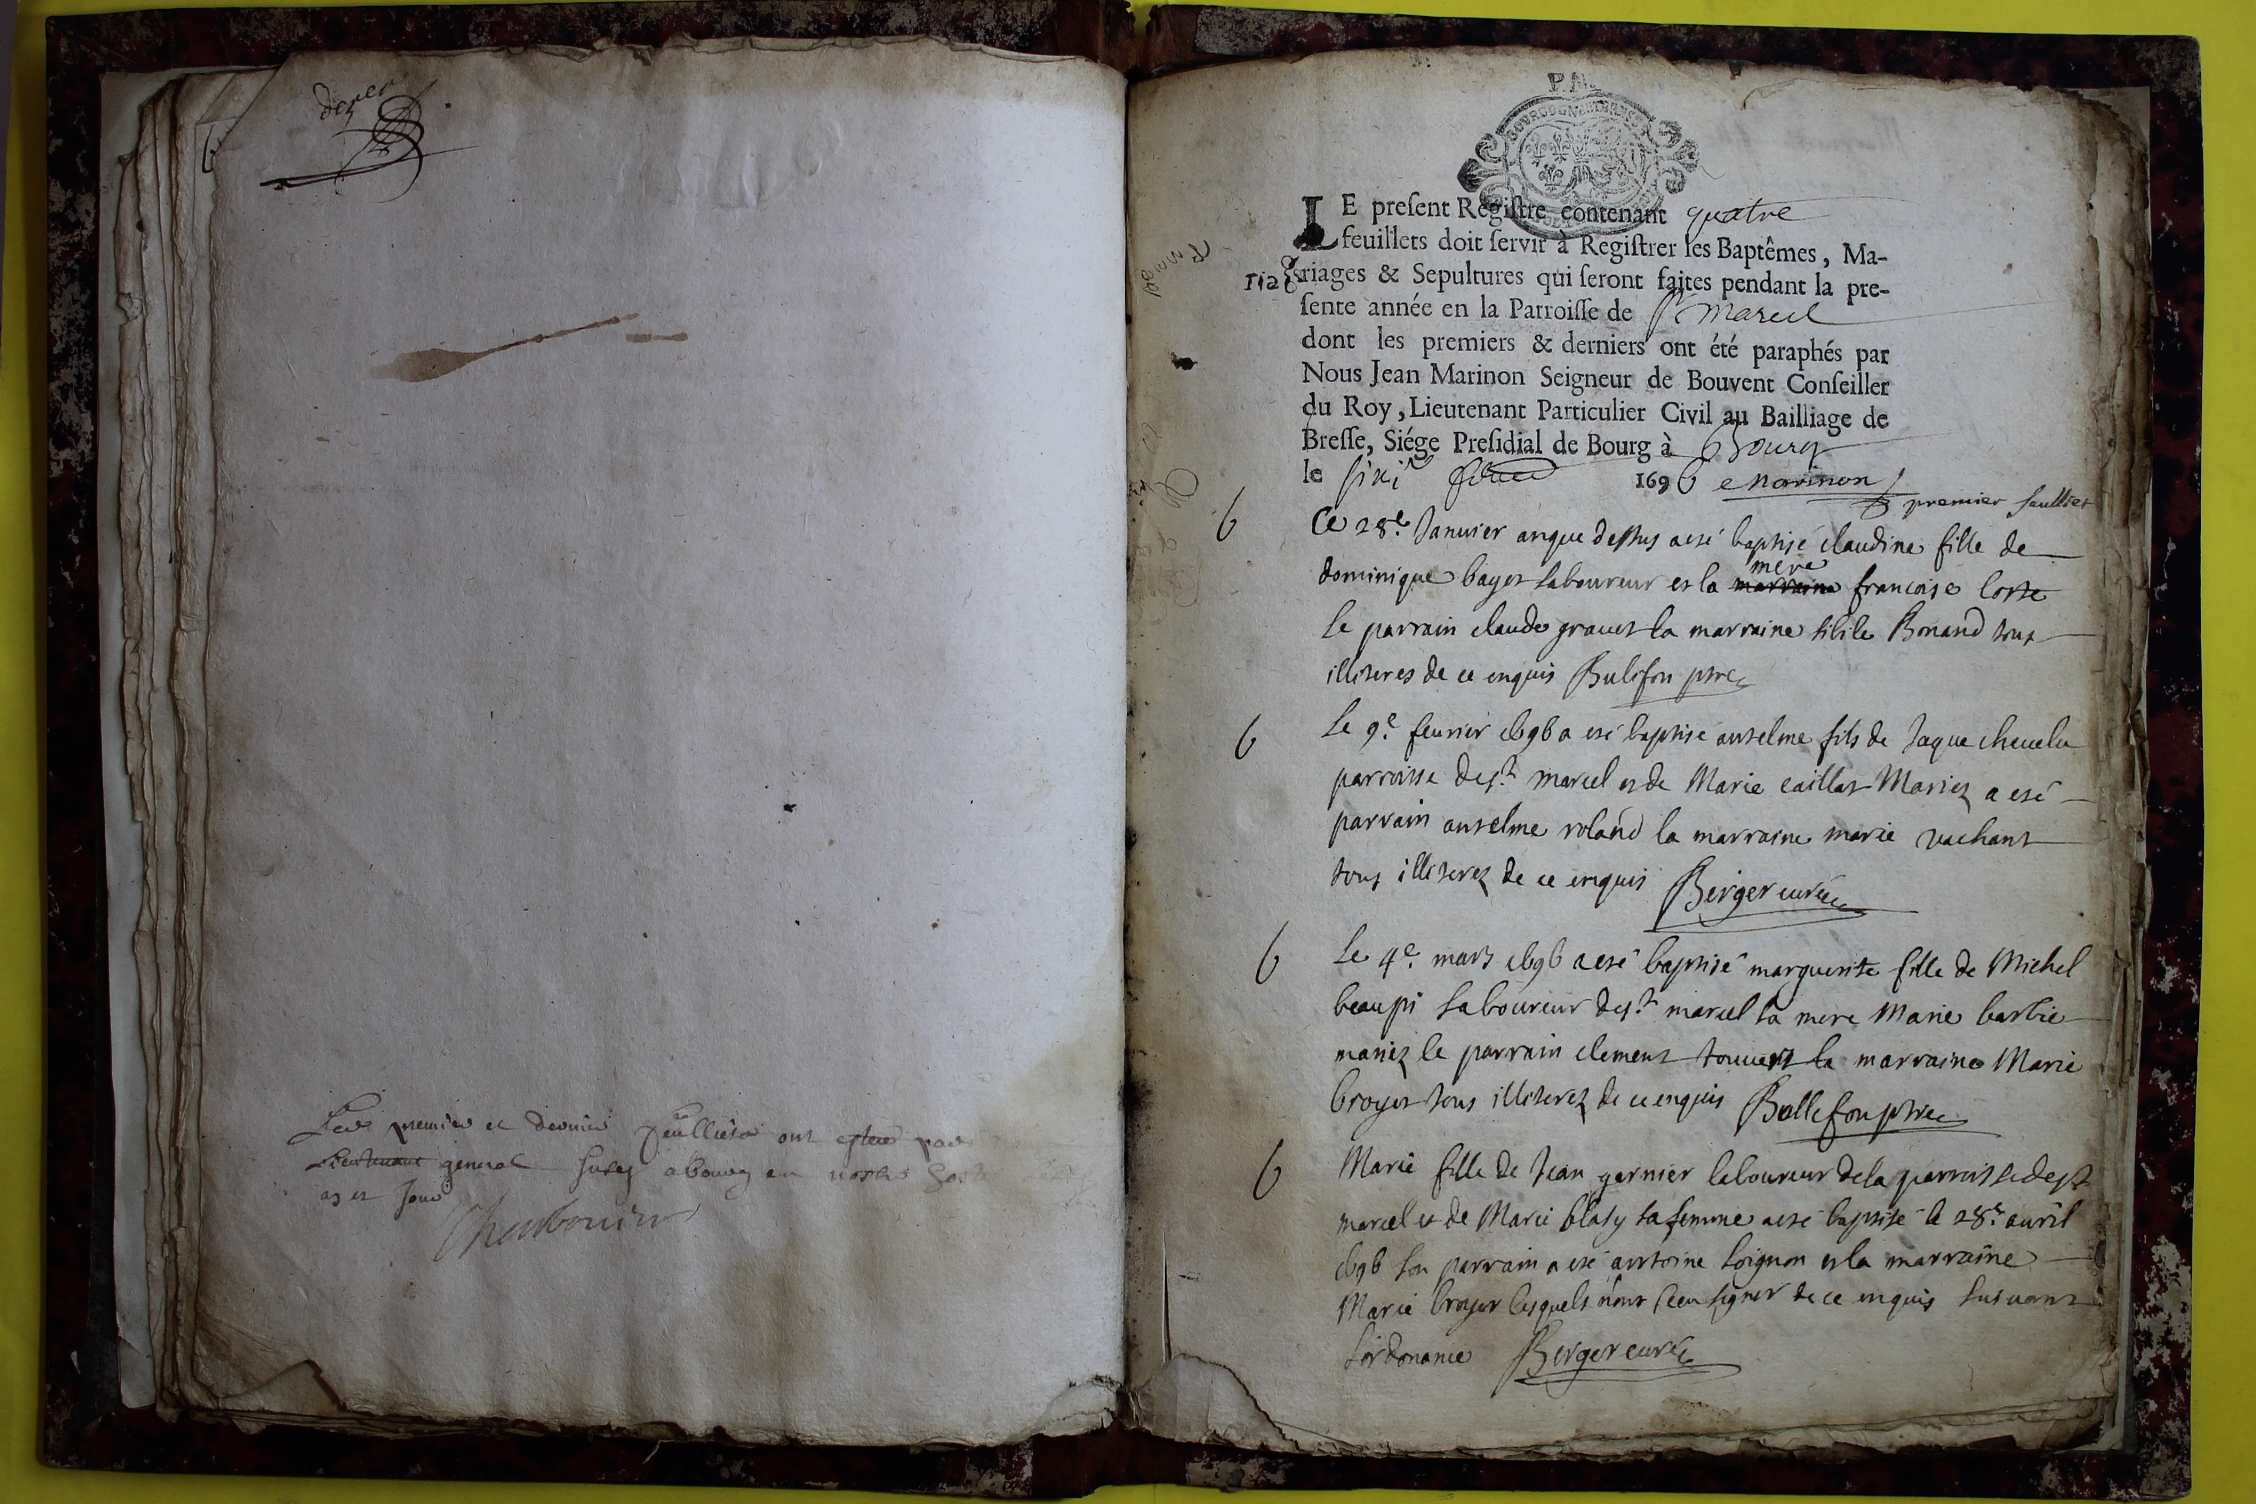 der
Les premier et dernier feullietz ont estez par
Lieutenant general a bourg en
an et Jour
Charbonnier
LE preſent Regiſtre contenant quatre
feuillets doit ſervir à Regiſtrer les Baptêmes, Ma-
riages & Sepultures qui ſeront faites pendant la pre-
ſente année en la Parroiſſe de St Marcel
dont les premiers & derniers ont été paraphés par
Nous Jean Marinon Seigneur de Bouvent Conſeiller
du Roy, Lieutenant Particulier Civil au Bailliage de
Breſſe, Siége Preſidial de Bourg à Bourg
le 1696 Marinon
premier feulliet
b Ce 28e Janvier anque dessus a esté baptisé claudine fille de
dominique bayet laboureur et la marraine mere francoise Coste
le parrain claude gravet la marraine sibile Bonand tous
illiteres de ce enquis Bulifon ptre
b Le 9e fevrier 1696 a esté baptisé antelme fils de Jaque chevelu
parroisse de st marcel et de Marie caillat Mariez a esté
parrain antelme roland la marraine marie vachant
tous illiterez de ce enquis Berger curé
b Le 4e mars 1696 a esté baptisé marguerite fille de Michel
beaupi laboureur de st marcel la mere Marie barbie
mariez le parrain clement touvert la marraine Marie
broyer tous illiterez de ce enquis Bollifon ptre
b Marie fille de Jean garnier laboureur de la parroisse de st
marcel et de Marie blasy sa femme a esté baptisé le 28e avril
1696 son parrain a esté antoine loignon et la marraine
Marie broyer lesquels n'ont sceu signer de ce enquis suivant
l'ordonance Berger curé